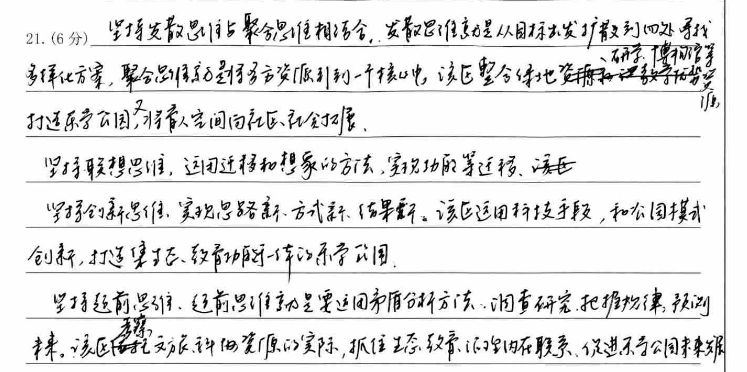 21. (6分) 坚持发散思维与聚合思维相结合。发散思维就是从目标出发扩散到四处寻找
多样化方案,聚合思维就是将多方资源引到一个核心点,该区整合绿地资源、研学、博物馆等资源
打造乐学公园,又将育人空间向社区、社会拓展。
坚持联想思维,运用迁移和想象的方法,实现功能等迁移、该区
坚持创新思维、实现思路新、方式新、结果新。该区运用科技手段,和公园模式
创新,打造集生态、教育功能于一体的乐学公园.
坚持超前思维、超前思维就是要运用矛盾分析方法、调查研究、把握规律,预测
未来。该区考察文旅、科物资源的实际,抓住生态、教育、的内在联系、促进乐学公园未来发展